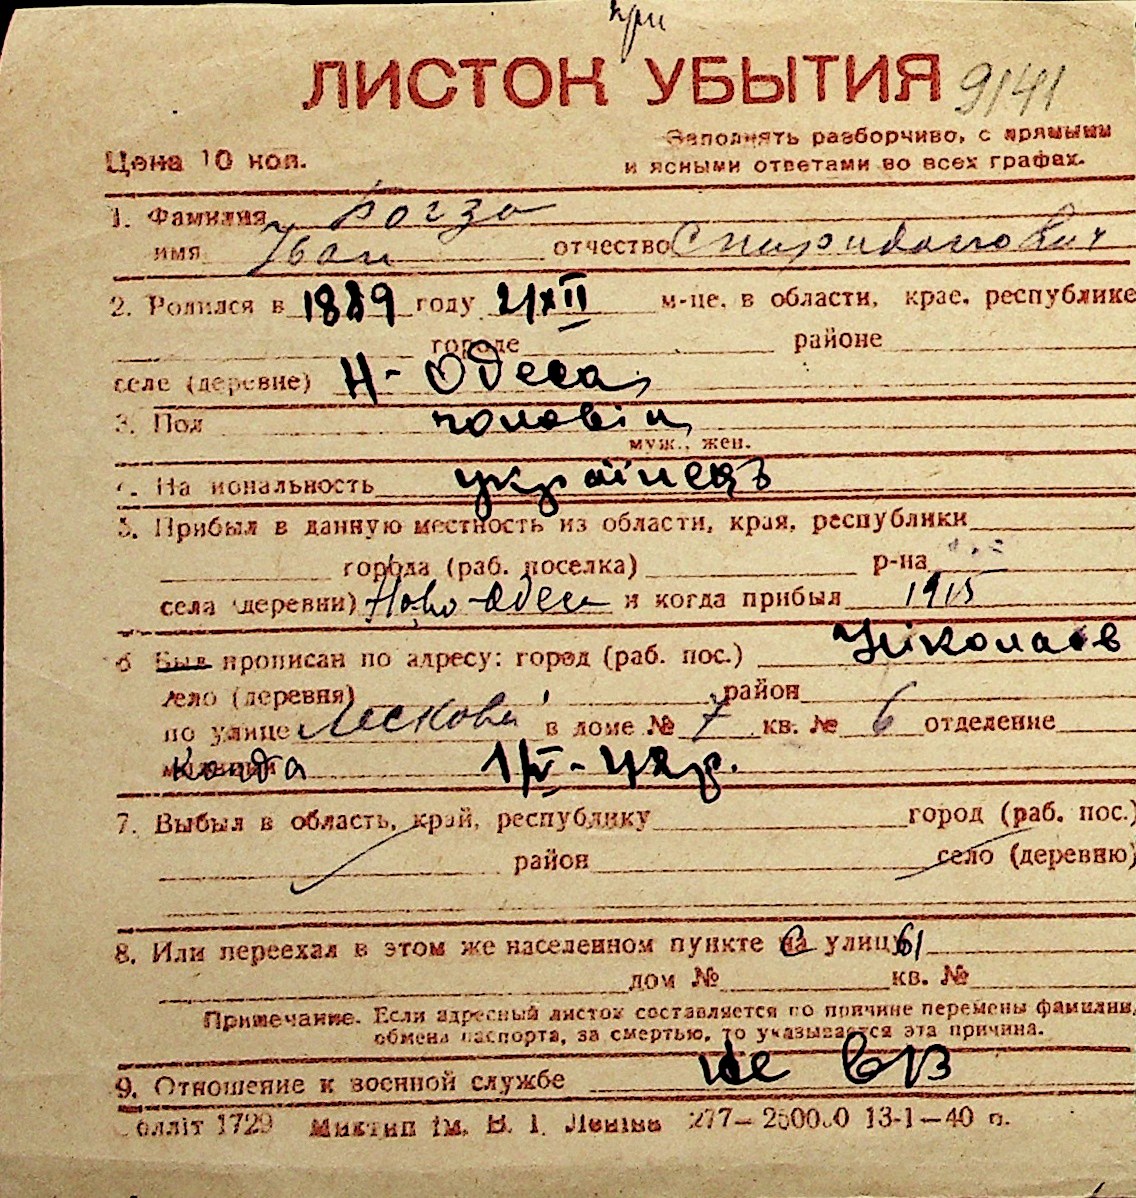 при
ЛИСТОК УБЫТИЯ 9141
Заполнять разборчиво, с прямыми
Цена 10 коп.
и ясными ответами во всех графах.
1. Фамилия
имя Іван отчество Спиридонович
2. Родился в 1889 году 21/XII м-це, в области, крае, республике
городе районе
селе (деревне) Н-Одеса,
3. Пол чоловіч,
муж., жен.
4. На иональность українець
5. Прибыл в данную местность из области, края, республики
города (раб. поселка) р-на
села (деревни) Ново-Одеса и когда прибыл 1915
6 Был прописан по адресу: город (раб. пос.) Ніколаєв
село (деревня) район
по улице Лескова в доме № 7 кв. № 6 отделение
когда 1/IV-42р.
7. Выбыл в область, край, республику город (раб. пос.)
район село (деревню)
8. Или переехал в этом же населенном пункте на улицу 61
дом № кв. №
Примечание. Если адресный листок составляется по причине перемены фамилии,
обмена паспорта, за смертью, то указывается эта причина.
9. Отношение к военной службе не в/з
Облліт 1729 Миктип ім. В. І. Леніна 277— 13-1—40 п.